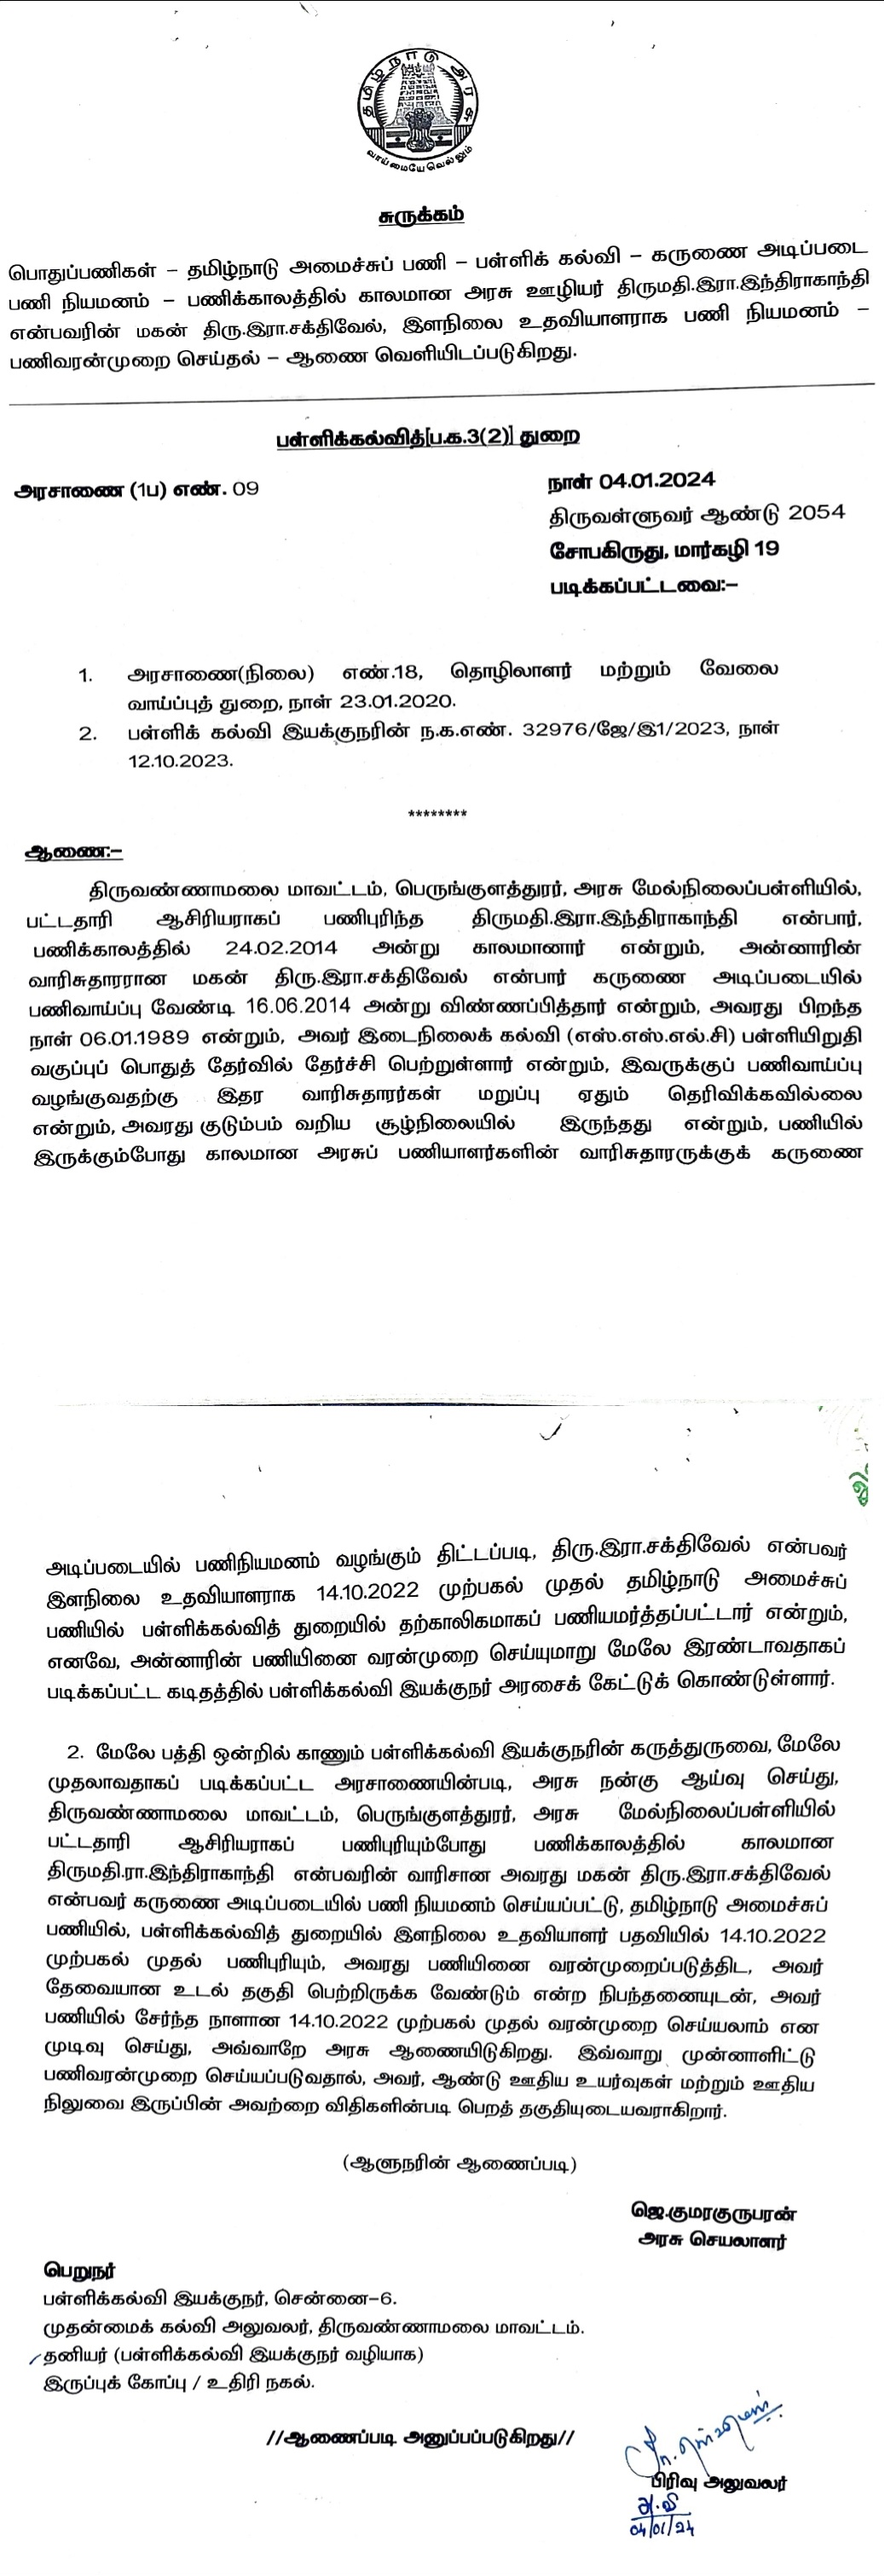 தமிழ்நாடு அரசு
வாய்மையே வெல்லும்
சுருக்கம்
பொதுப்பணிகள் – தமிழ்நாடு அமைச்சுப் பணி – பள்ளிக் கல்வி – கருணை அடிப்படை
பணி நியமனம் – பணிக்காலத்தில் காலமான அரசு ஊழியர் திருமதி.இரா.இந்திராகாந்தி
என்பவரின் மகன் திரு.இரா.சக்திவேல், இளநிலை உதவியாளராக பணி நியமனம் –
பணிவரன்முறை செய்தல் – ஆணை வெளியிடப்படுகிறது.
பள்ளிக்கல்வித்[ப.க.3(2)] துறை
அரசாணை (1ப) எண். 09
நாள் 04.01.2024
திருவள்ளுவர் ஆண்டு 2054
சோபகிருது, மார்கழி 19
படிக்கப்பட்டவை:–
1. அரசாணை(நிலை) எண்.18, தொழிலாளர் மற்றும் வேலை
வாய்ப்புத் துறை, நாள் 23.01.2020.
2. பள்ளிக் கல்வி இயக்குநரின் ந.க.எண். 32976/ஜே/இ1/2023, நாள்
12.10.2023.
********
ஆணை:–
திருவண்ணாமலை மாவட்டம், பெருங்குளத்தூர், அரசு மேல்நிலைப்பள்ளியில்,
பட்டதாரி ஆசிரியராகப் பணிபுரிந்த திருமதி.இரா.இந்திராகாந்தி என்பார்,
பணிக்காலத்தில் 24.02.2014 அன்று காலமானார் என்றும், அன்னாரின்
வாரிசுதாரரான மகன் திரு.இரா.சக்திவேல் என்பார் கருணை அடிப்படையில்
பணிவாய்ப்பு வேண்டி 16.06.2014 அன்று விண்ணப்பித்தார் என்றும், அவரது பிறந்த
நாள் 06.01.1989 என்றும், அவர் இடைநிலைக் கல்வி (எஸ்.எஸ்.எல்.சி) பள்ளியிறுதி
வகுப்புப் பொதுத் தேர்வில் தேர்ச்சி பெற்றுள்ளார் என்றும், இவருக்குப் பணிவாய்ப்பு
வழங்குவதற்கு இதர வாரிசுதாரர்கள் மறுப்பு ஏதும் தெரிவிக்கவில்லை
என்றும், அவரது குடும்பம் வறிய சூழ்நிலையில் இருந்தது என்றும், பணியில்
இருக்கும்போது காலமான அரசுப் பணியாளர்களின் வாரிசுதாரருக்குக் கருணை
அடிப்படையில் பணிநியமனம் வழங்கும் திட்டப்படி, திரு.இரா.சக்திவேல் என்பவர்
இளநிலை உதவியாளராக 14.10.2022 முற்பகல் முதல் தமிழ்நாடு அமைச்சுப்
பணியில் பள்ளிக்கல்வித் துறையில் தற்காலிகமாகப் பணியமர்த்தப்பட்டார் என்றும்,
எனவே, அன்னாரின் பணியினை வரன்முறை செய்யுமாறு மேலே இரண்டாவதாகப்
படிக்கப்பட்ட கடிதத்தில் பள்ளிக்கல்வி இயக்குநர் அரசைக் கேட்டுக் கொண்டுள்ளார்.
2. மேலே பத்தி ஒன்றில் காணும் பள்ளிக்கல்வி இயக்குநரின் கருத்துருவை, மேலே
முதலாவதாகப் படிக்கப்பட்ட அரசாணையின்படி, அரசு நன்கு ஆய்வு செய்து,
திருவண்ணாமலை மாவட்டம், பெருங்குளத்தூர், அரசு மேல்நிலைப்பள்ளியில்
பட்டதாரி ஆசிரியராகப் பணிபுரியும்போது பணிக்காலத்தில் காலமான
திருமதி.ரா.இந்திராகாந்தி என்பவரின் வாரிசான அவரது மகன் திரு.இரா.சக்திவேல்
என்பவர் கருணை அடிப்படையில் பணி நியமனம் செய்யப்பட்டு, தமிழ்நாடு அமைச்சுப்
பணியில், பள்ளிக்கல்வித் துறையில் இளநிலை உதவியாளர் பதவியில் 14.10.2022
முற்பகல் முதல் பணிபுரியும், அவரது பணியினை வரன்முறைப்படுத்திட, அவர்
தேவையான உடல் தகுதி பெற்றிருக்க வேண்டும் என்ற நிபந்தனையுடன், அவர்
பணியில் சேர்ந்த நாளான 14.10.2022 முற்பகல் முதல் வரன்முறை செய்யலாம் என
முடிவு செய்து, அவ்வாறே அரசு ஆணையிடுகிறது. இவ்வாறு முன்னாளிட்டு
பணிவரன்முறை செய்யப்படுவதால், அவர், ஆண்டு ஊதிய உயர்வுகள் மற்றும் ஊதிய
நிலுவை இருப்பின் அவற்றை விதிகளின்படி பெறத் தகுதியுடையவராகிறார்.
(ஆளுநரின் ஆணைப்படி)
ஜெ.குமரகுருபரன்
அரசு செயலாளர்
பெறுநர்
பள்ளிக்கல்வி இயக்குநர், சென்னை–6.
முதன்மைக் கல்வி அலுவலர், திருவண்ணாமலை மாவட்டம்.
தனியர் (பள்ளிக்கல்வி இயக்குநர் வழியாக)
இருப்புக் கோப்பு / உதிரி நகல்.
//ஆணைப்படி அனுப்பப்படுகிறது//
பிரிவு அலுவலர்
04/01/24